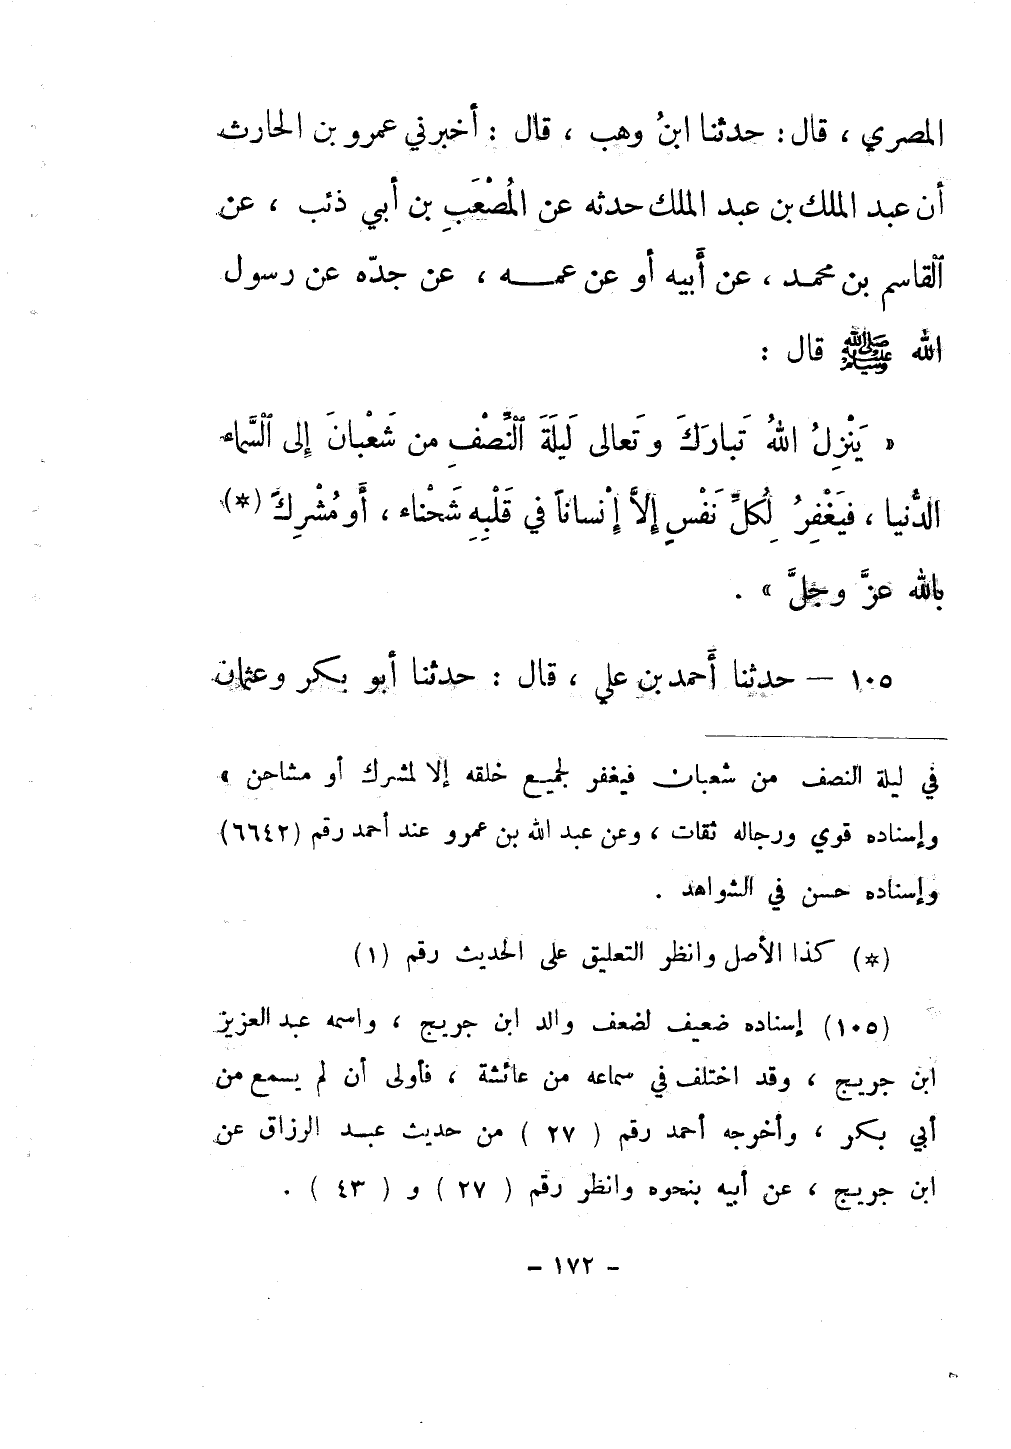 المصري ، قال : حدثنا ابنُ وهب ، قال : أخبرني عمرو بن الحارث
أن عبد الملك بن عبد الملك حدثه عن المُصْعَبِ بن أبي ذئب ، عن
ٱلقاسم بن محمد ، عن أَبيه أو عن عمــه ، عن جدّه عن رسول
الله ﷺ قال :
« يَنْزِلُ اللهُ تَبارَكَ وتَعالى لَيلَةَ ٱلنِّصْفِ من شَعْبانَ إِلى ٱلسَّماء
الدُّنيا ، فيَغْفِرُ لِكلِّ نَفْسٍ إلاَّ إنْساناً في قَلْبِهِ شَحْناء ، أَو مُشْرِكَ (*)
بالله عزَّ وجلَّ » .
١٠٥ — حدثنا أَحمد بن علي ، قال : حدثنا أبو بكر وعثمان
في ليلة النصف من شعبان فيغفر لجميع خلقه إلا لمشرك أو مشاحن »
وإسناده قوي ورجاله ثقات ، وعن عبد الله بن عمرو عند أحمد رقم (٦٦٤٢)
وإسناده حسن في الشواهد .
(*) كذا الأصل وانظر التعليق على الحديث رقم (١)
(١٠٥) إسناده ضعيف لضعف والد ابن جريج ، واسمه عبد العزيز
ابن جريج ، وقد اختلف في سماعه من عائشة ، فأولى أن لم يسمع من
أبي بكر ، وأخرجه أحمد رقم ( ٢٧ ) من حديث عبد الرزاق عن
ابن جريج ، عن أبيه بنحوه وانظر رقم ( ٢٧ ) و ( ٤٣ ) .
- ١٧٢ -